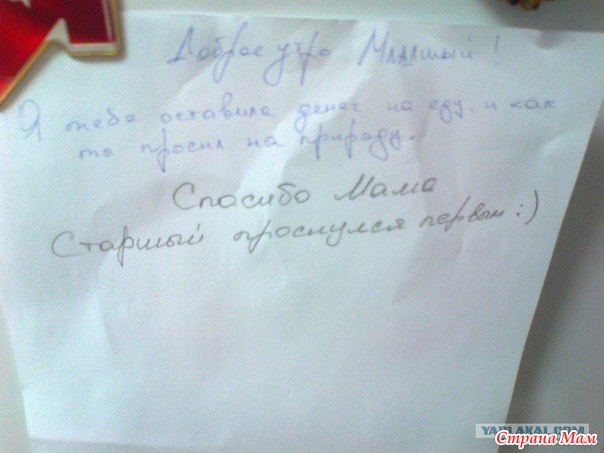 Доброе утро Младший!
Я тебе оставила денег на еду, и как
ты просил на природу.
Спасибо Мама
Старший проснулся первым :)
YAPLAKAL.COM
Страна Мам